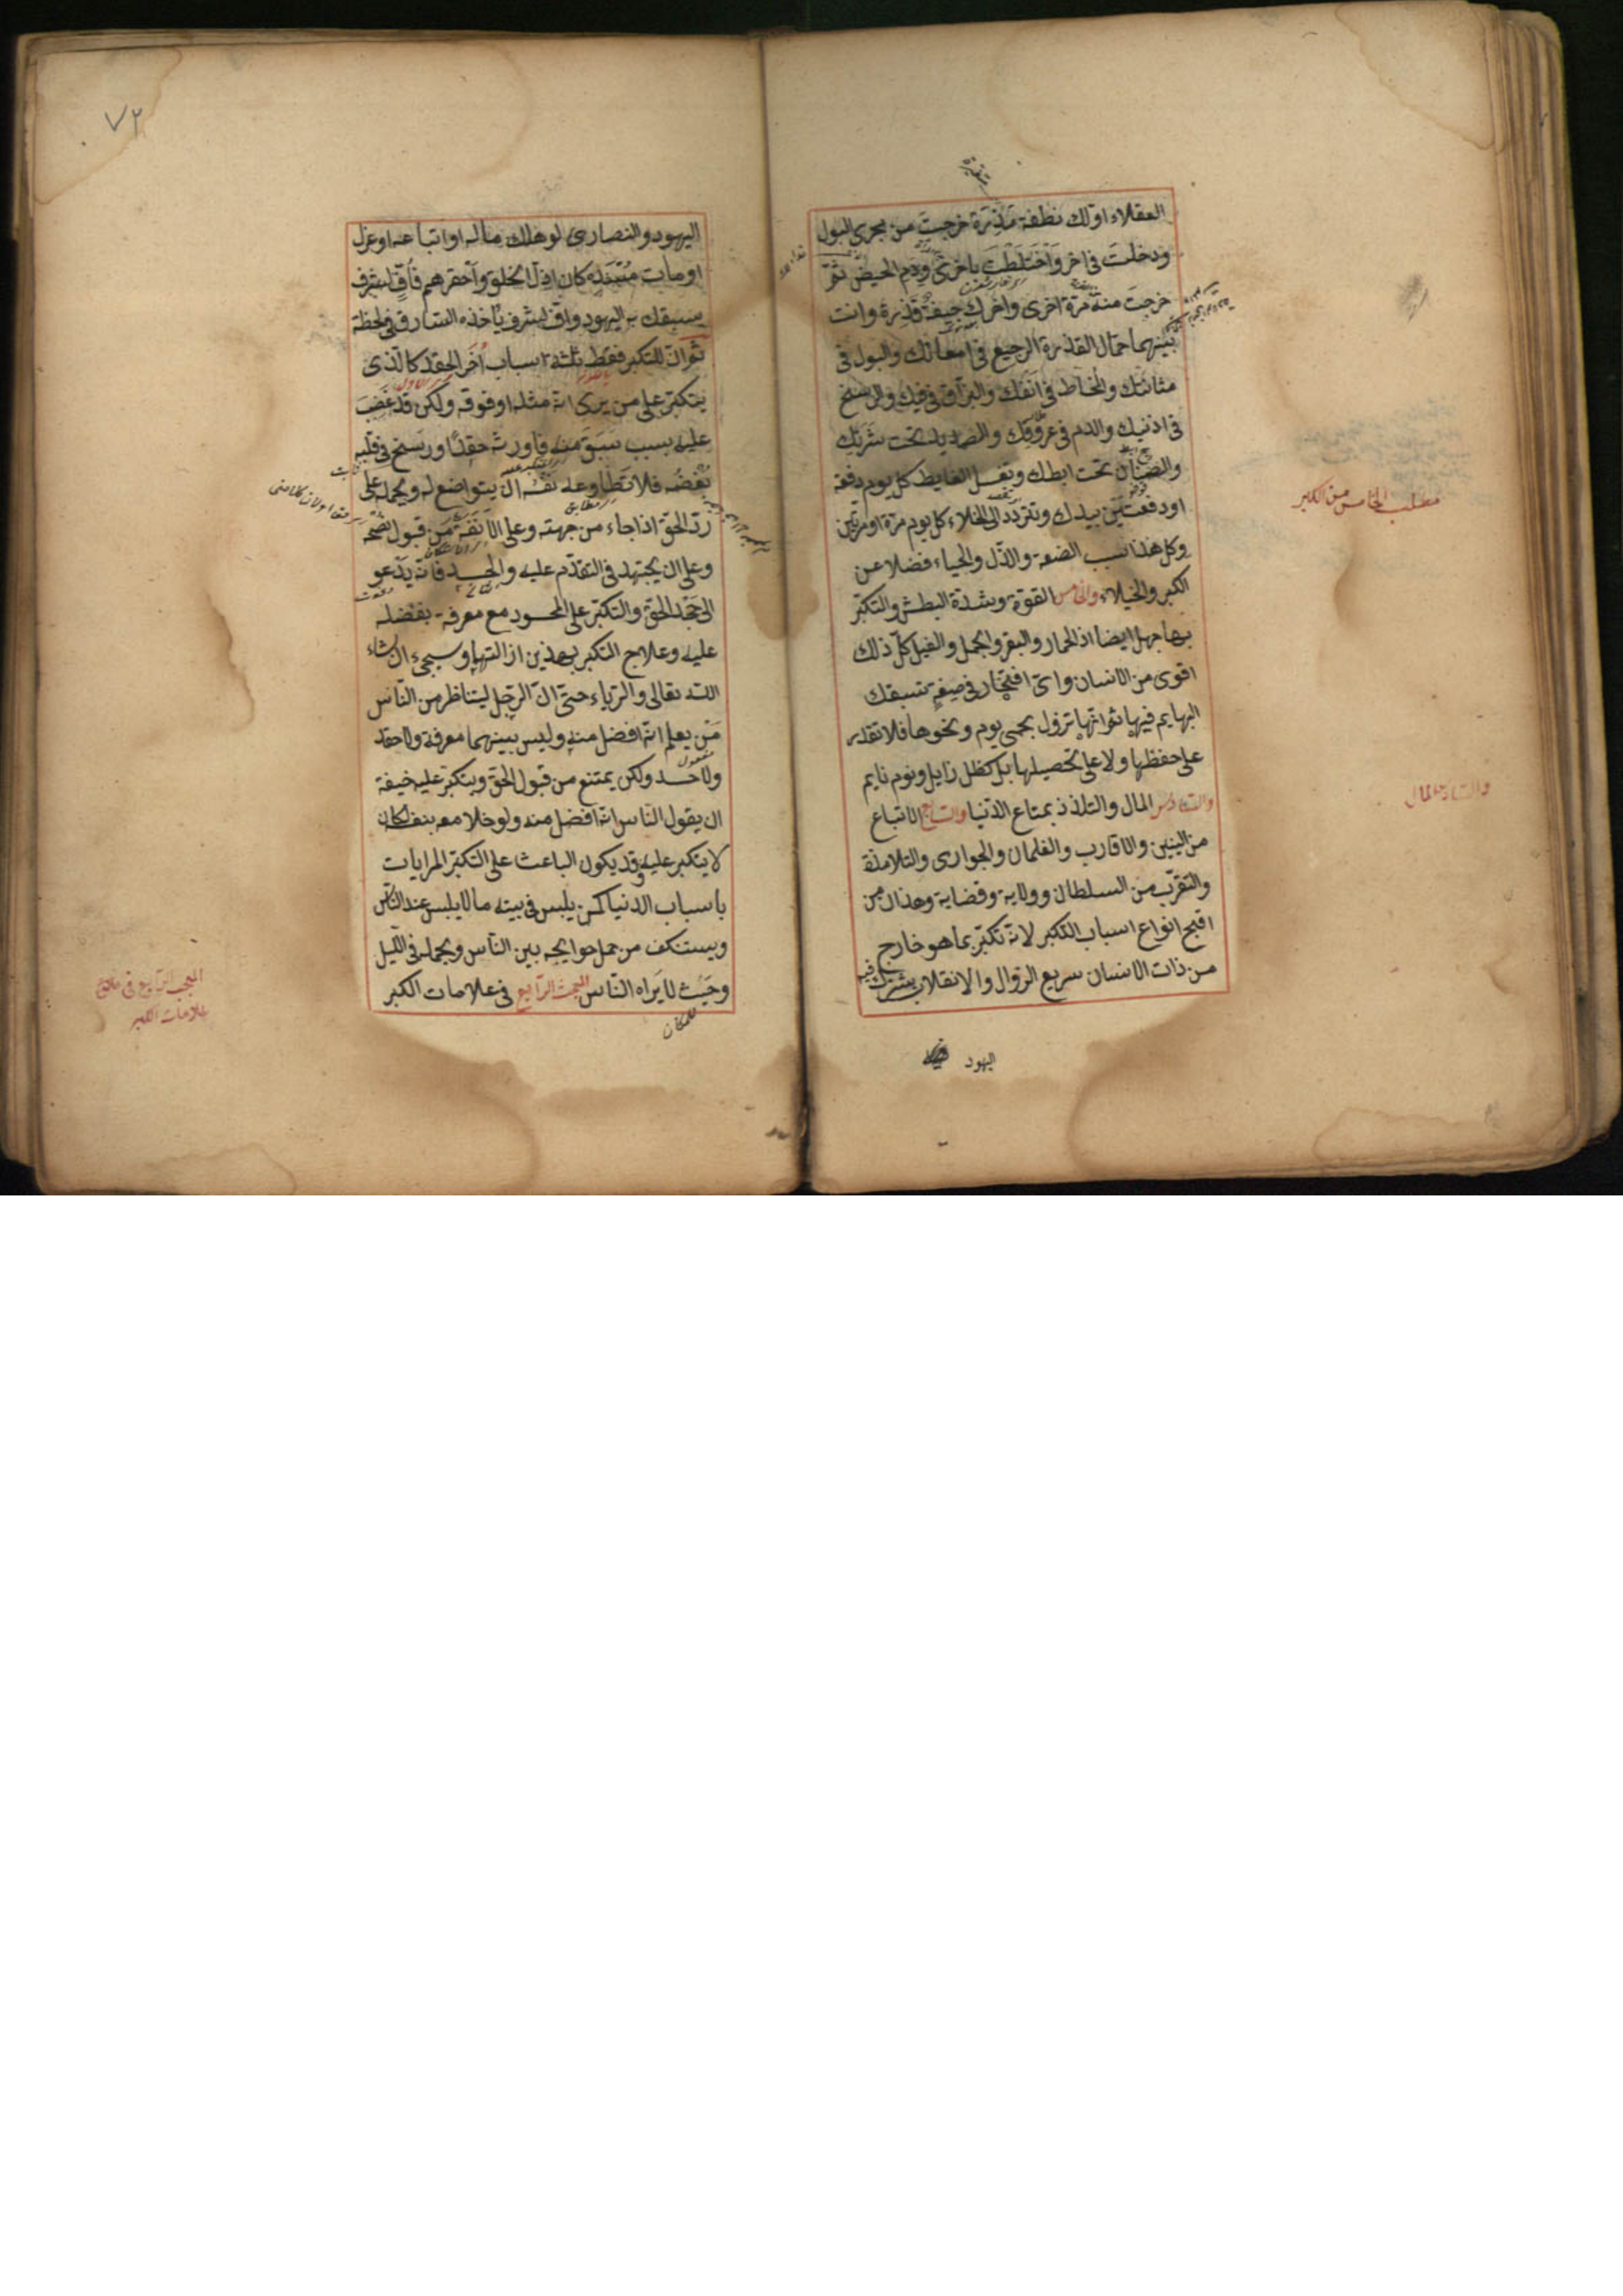 العقلاء اولك نطفة مذرة خرجت من مجرى البول
ودخلت فى اخر واختلطت باخرى ودم الحيض ثم
خرجت منه مرة اخرى واخرك جيفة قذرة وانت
بينهما حمال القذرة الرجيع فى امعائك والبول فى
مثانتك والمخاط فى انفك والبزاق فى فيك والوسخ
فى اذنيك والدم فى عروقك والصديد تحت بشرتك
والصنان تحت ابطك وتغسل الغايط كل يوم دفعة
او دفعتين بيدك وتتردد الى الخلاء كل يوم مرة او مرتين
وكل هذا سبب الضعة والذل والحياء فضلا عن
الكبر والخيلاء والخامس القوة وشدة البطش والتكبر
بها جهل ايضا اذ الحمار والبقر والجمل والفيل كل ذلك
اقوى من الانسان واى افتخار فى صفة تسبقك
البهايم فيها ثم انها تزول بحمى يوم ونحوها فلا تقدر
على حفظها ولا على تحصيلها بل كظل زايل ونوم نايم
والسادس المال والتلذذ بمتاع الدنيا والسابع الاتباع
من البنين والاقارب والغلمان والجوارى والتلامذة
والتقرب من السلطان وولاية وقضاية وهذان من
اقبح انواع اسباب التكبر لانه تكبر بما هو خارج
من ذات الانسان سريع الزوال والانقلاب يشترك فيه
اليهود
مطلب الخامس من الكبر
والسادس المال
٧٢
اليهود والنصارى لو هلك ماله او اتباعه او عزل
او مات متبعه كان اذل الخلق واحقرهم فاف لشرف
يسبقك به اليهود واف لشرف يأخذه السارق فى لحظة
ثم ان للتكبر فقط ثلثة اسباب اخر الحقد كالذى
يتكبر على من يرى انه مثله او فوقه ولكن قد غضب
عليه بسبب سبق منه فاورثه حقدا ورسخ فى قلبه
بغضه فلا تطاوعه نفسه ان يتواضع له ويحمله على
رد الحق اذا جاء من جهته وعلى الانفة من قبول نصحه
وعلى ان يجتهد فى التقدم عليه والحسد فانه يدعو
الى جحد الحق والتكبر على المحسود مع معرفة بفضله
عليه وعلاج التكبر بهذين ازالتهما وسيجئ ان شاء
الله تعالى والرياء حتى ان الرجل ليناظر من الناس
من يعلم انه افضل منه وليس بينهما معرفة ولا حقد
ولا حسد ولكن يمتنع من قبول الحق ويتكبر عليه خيفة
ان يقول الناس انه افضل منه ولو خلا معه بنفسه لكان
لا يتكبر عليه وقد يكون الباعث على التكبر المرايات
باسباب الدنيا كمن يلبس فى بيته ما لا يلبس عند الناس
ويستنكف من حمل حوايجه بين الناس ويحمله فى الليل
وحيث لا يراه الناس المبحث الرابع فى علامات الكبر
المبحث الرابع فى
علامات الكبر